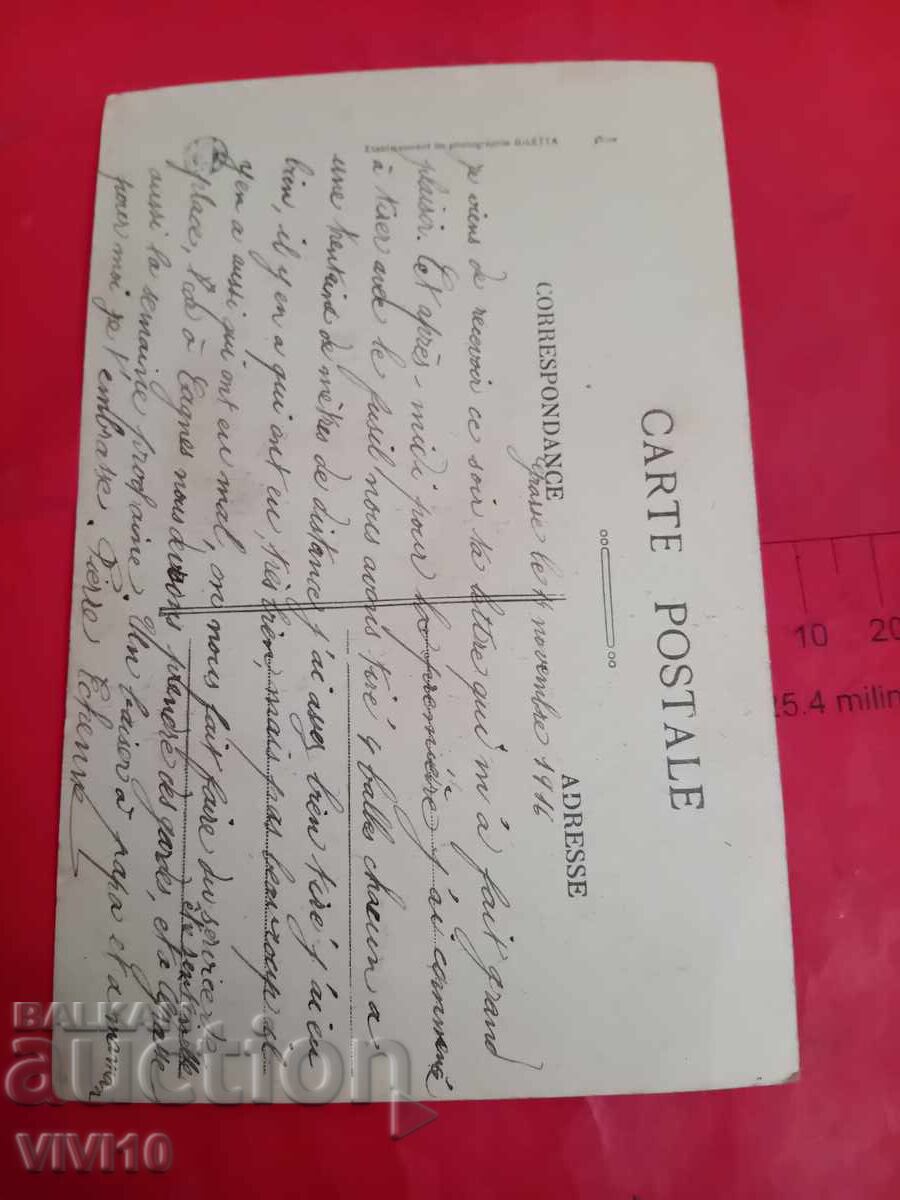 CARTE POSTALE
CORRESPONDANCE
ADRESSE
Etablissement de photographie GILETTA
Grasse le novembre 1916
Je viens de recevoir ce soir ta lettre qui m'a fait grand
plaisir. Cet après-midi pour la première j'ai commencé
à tirer avec le fusil nous avons tiré 4 balles chacun a
une trentaine de mètres de distance j'ai assez bien tiré j'ai eu
bien, il y en a qui ont eu, très bien, mais pas beaucoup et
y en a aussi qui ont eu mal, on nous fait faire du service de
place, à Cagnes nous devons prendre des gardes, et a Grasse
et de sentinelle
aussi la semaine prochaine. Un baiser à papa et a maman
pour moi je t'embrasse. Pierre Etienne
10 20
25.4 milim
BALKAN
auction
VIVI10